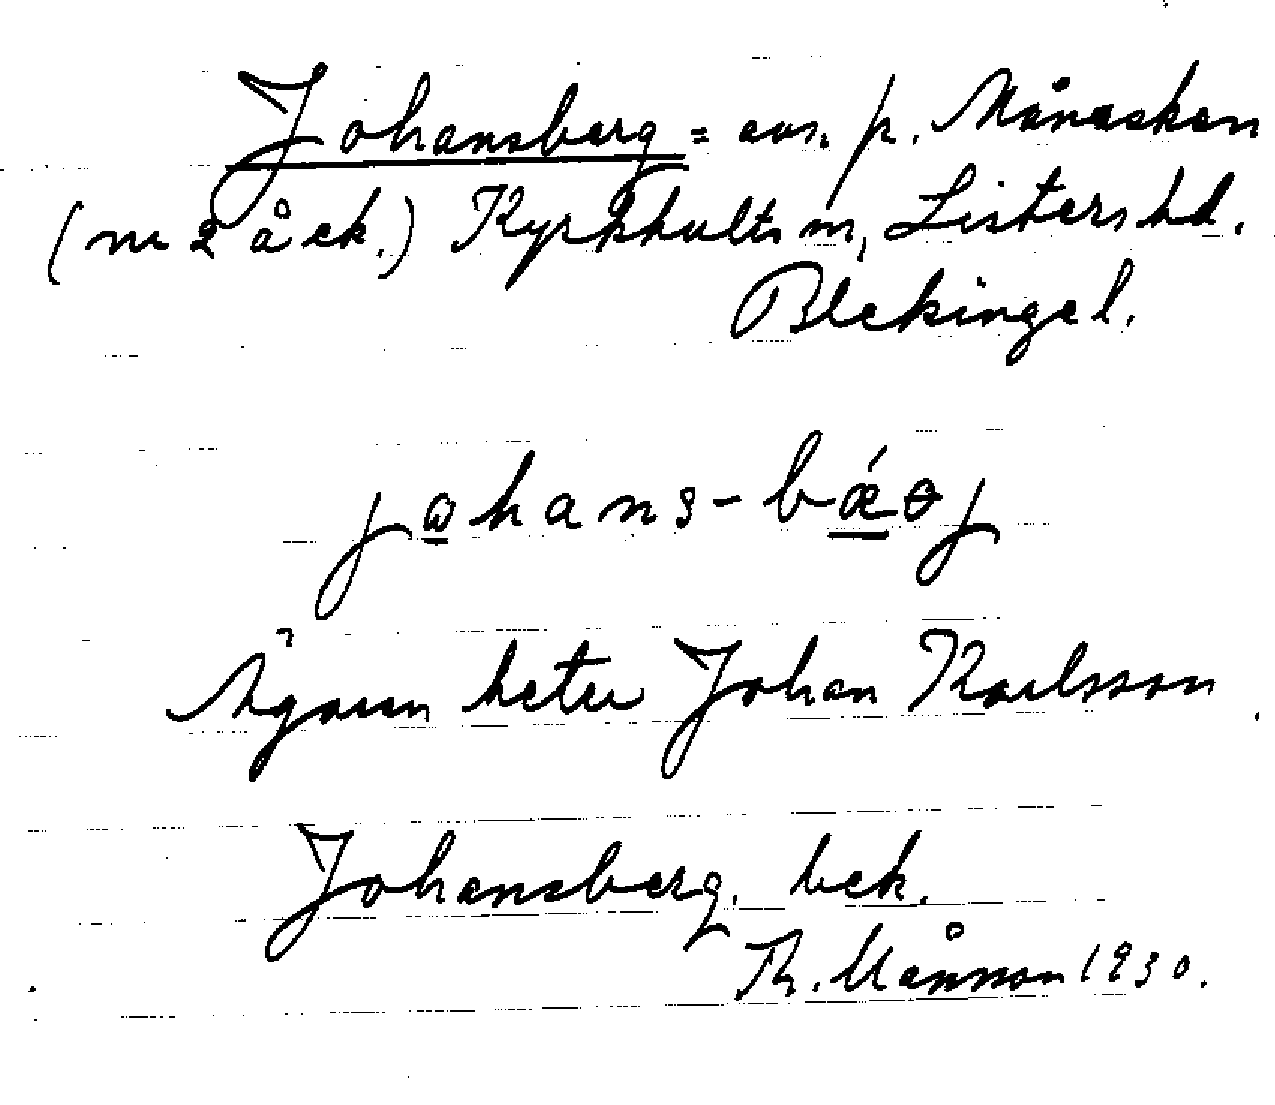 Johansberg = avs. p. Månaskan
(nr 2 åck.) Kyrkhults sn, Listers hd.
Blekinge l.
johans-bǽrj
Ägaren heter Johan Karlsson
Johansberg. bek.
Th. Månsson 1930.